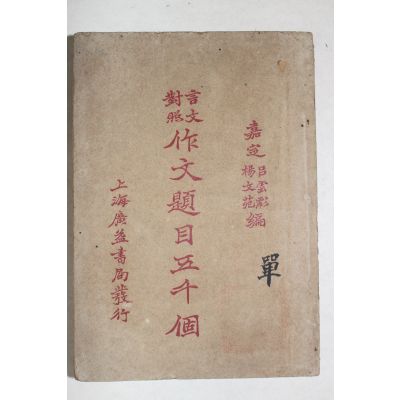 嘉定呂雲彪楊文苑編
單
言文對照
作文題目五千個
上海廣益書局發行